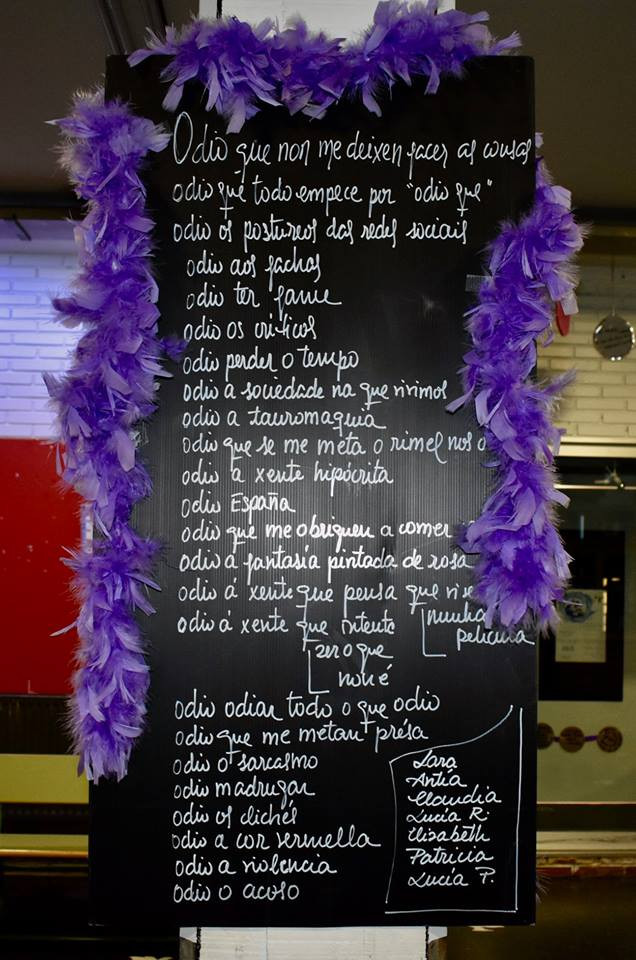 Odio que non me deixen facer as cousas
odio que todo empece por "odio que"
odio os postureos das redes sociais
odio aos fachas
odio ter fame
odio os críticos
odio perder o tempo
odio a sociedade na que vivimos
odio a tauromaquia
odio que se me meta o rimel nos
odio a xente hipócrita
odio España
odio que me obriguen a comer
odio a fantasía pintada de rosa
odio á xente que pensa que vive
nunha
película
odio á xente que intente
ser o que
non é
odio odiar todo o que odio
odio que me metan présa
odio o sarcasmo
odio madrugar
odio os clichés
odio a cor vermella
odio a violencia
odio o acoso
Sara
Antía
Claudia
Lucía R.
Elisabeth
Patricia
Lucía P.